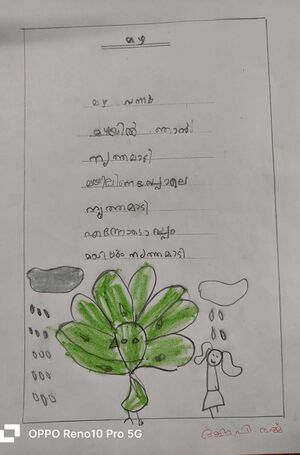 മഴ
മഴ വന്നു
മഴയിൽ ഞാൻ
നൃത്തമാടി
മയിലിനെപ്പോലെ
നൃത്തമാടി
എന്നോടൊപ്പം
മയിലും നൃത്തമാടി
OPPO Reno10 Pro 5G